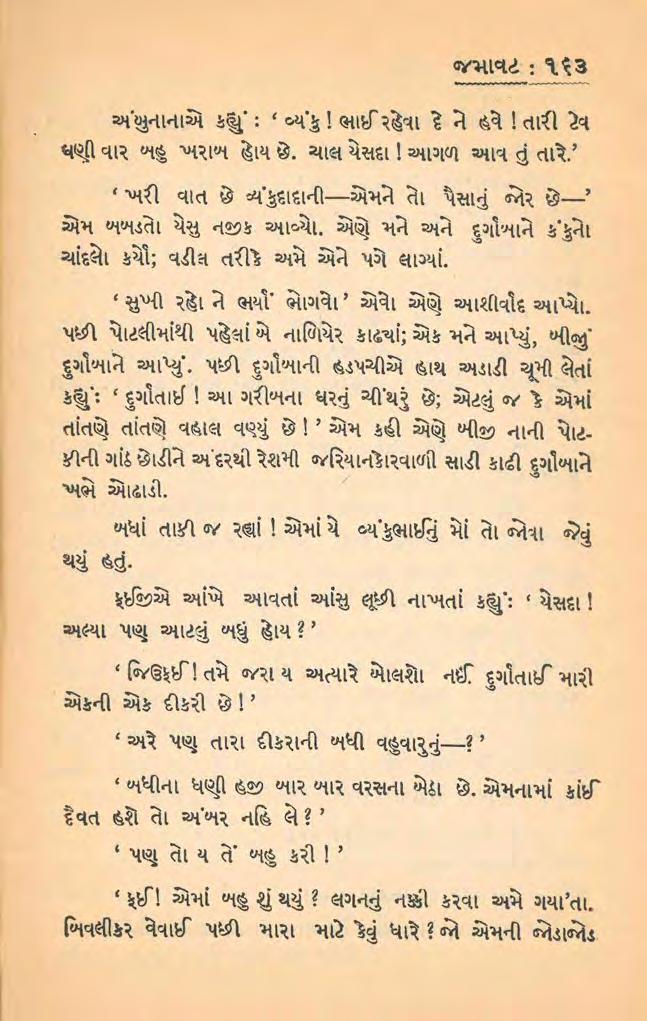 જમાવટ : ૧૬૩
અંબુનાનાએ કહ્યું : ‘ વ્યંકુ ! ભાઈ રહેવા દે ને હવે ! તારી ટેવ
ઘણી વાર બહુ ખરાબ હોય છે. ચાલ યેસદા ! આગળ આવ તું તારે.’
‘ ખરી વાત છે વ્યંકુદાદાની—એમને તો પૈસાનું જોર છે—’
એમ બબડતો યેસુ નજીક આવ્યો. એણે મને અને દુર્ગાબાને કંકુનો
ચાંદલો કર્યો; વડીલ તરીકે અમે એને પગે લાગ્યાં.
‘ સુખી રહો ને ભર્યાં ભોગવો ’ એવો એણે આશીર્વાદ આપ્યો.
પછી પોટલીમાંથી પહેલાં બે નાળિયેર કાઢ્યાં; એક મને આપ્યું, બીજું
દુર્ગાબાને આપ્યું. પછી દુર્ગાબાની હડપચીએ હાથ અડાડી ચૂમી લેતાં
કહ્યું: ‘ દુર્ગાતાઈ ! આ ગરીબના ઘરનું ચીંથરું છે; એટલું જ કે એમાં
તાંતણે તાંતણે વહાલ વણ્યું છે ! ’ એમ કહી એણે બીજી નાની પોટ-
કીની ગાંઠ છોડીને અંદરથી રેશમી જરિયાનકોરવાળી સાડી કાઢી દુર્ગાબાને
ખભે ઓઢાડી.
બધાં તાકી જ રહ્યાં ! એમાં યે વ્યંકુભાઈનું મોં તો જોવા જેવું
થયું હતું.
ફઈજીએ આંખે આવતાં આંસુ લૂછી નાખતાં કહ્યું: ‘ યેસદા !
અલ્યા પણ આટલું બધું હોય ? ’
‘ જિઉફઈ ! તમે જરા ય અત્યારે બોલશો નઈં. દુર્ગાતાઈ મારી
એકની એક દીકરી છે ! ’
‘ અરે પણ તારા દીકરાની બધી વહુવારુનું—? ’
‘ બધીના ધણી હજી બાર બાર વરસના બેઠા છે. એમનામાં કાંઈ
દૈવત હશે તો અંબર નહિ લે ? ’
‘ પણ તો ય તેં બહુ કરી ! ’
‘ ફઈ! એમાં બહુ શું થયું ? લગનનું નક્કી કરવા અમે ગયા’તા.
બિવલીકર વેવાઈ પછી મારા માટે કેવું ધારે ? જો એમની જોડાજોડ